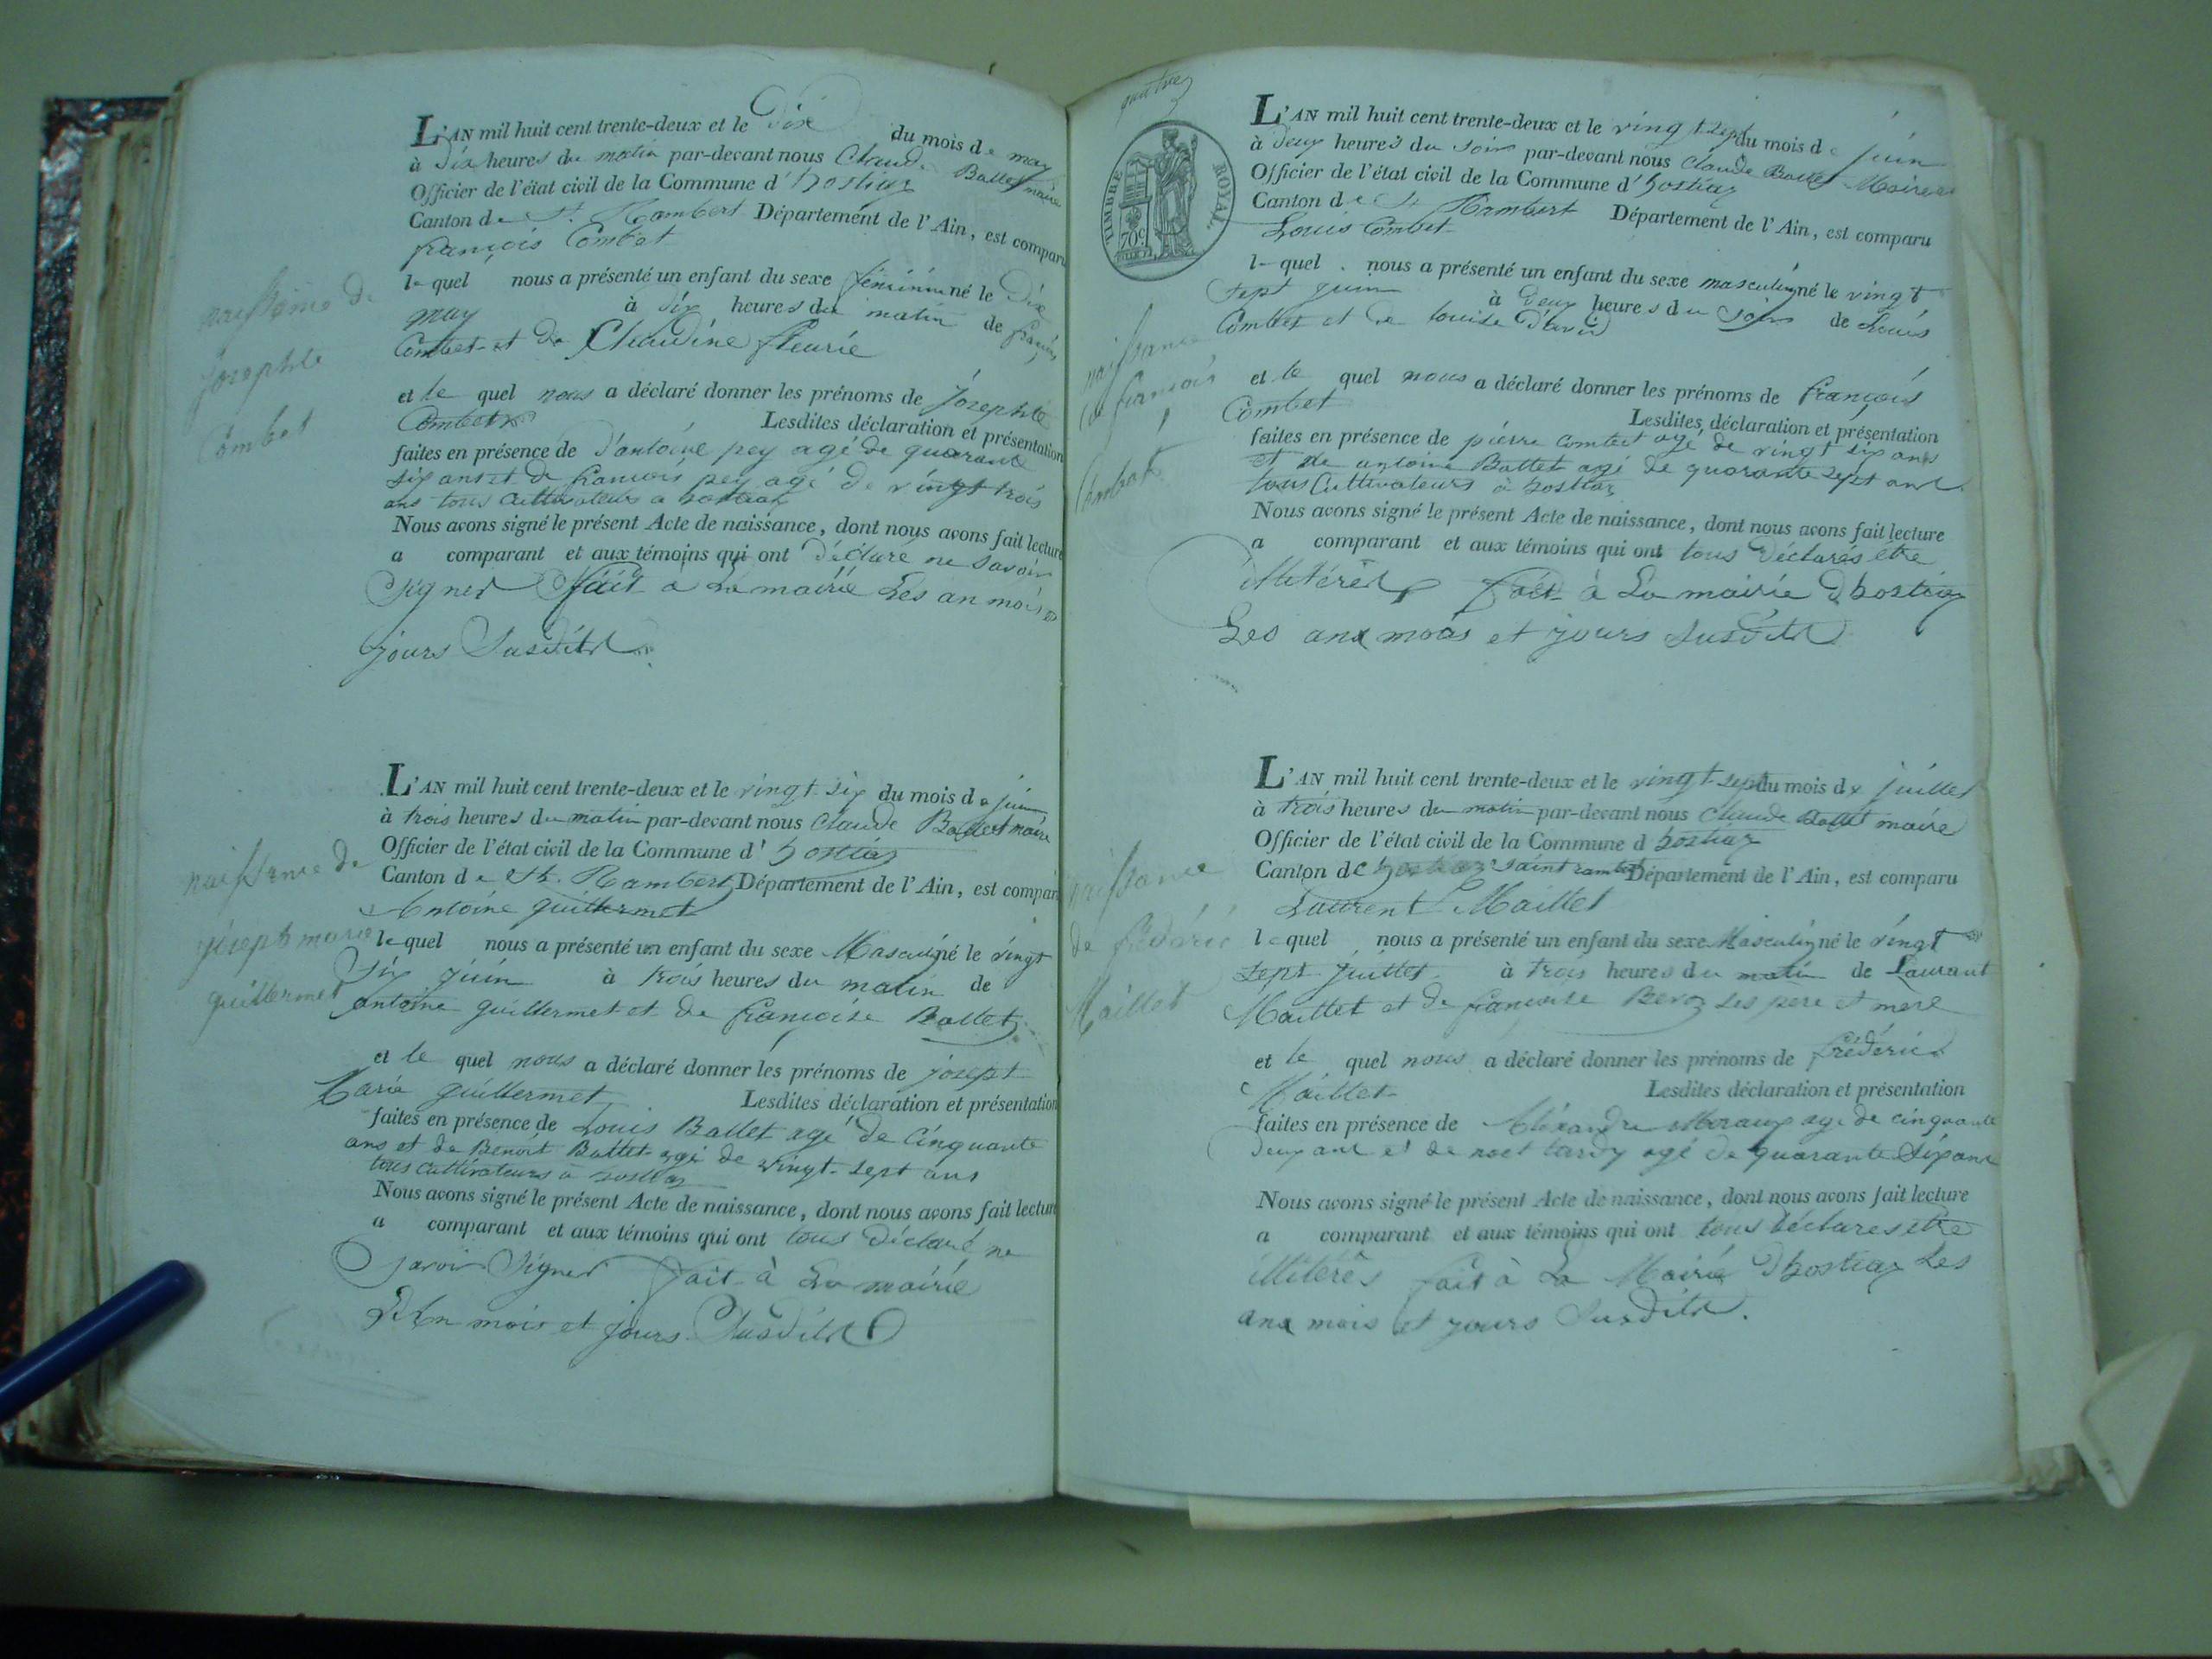 L'AN mil huit cent trente-deux et le Dix du mois de may
à Dix heures du matin par-devant nous Claude Ballet maire
Officier de l'état civil de la Commune d'hostiaz
Canton de St. Rambert Département de l'Ain, est comparu
françois Combet
lequel nous a présenté un enfant du sexe féminin né le Dix
may à Dix heures du matin de françois
Combet et de Claudine fleurie
et le quel nous a déclaré donner les prénoms de Josephte
Combet Lesdites déclaration et présentation
faites en présence de D'antoine pey agé de quarante
six ans et de francois pey agé de vingt trois
ans tous cultivateurs a hostiaz
Nous avons signé le présent Acte de naissance, dont nous avons fait lecture
a comparant et aux témoins qui ont Déclaré ne savoir
signer fait a La mairie Les an mois
jours Susdits
naissance de
Josephte
Combet
L'AN mil huit cent trente-deux et le vingt six du mois de juin
à trois heures du matin par-devant nous Claude Ballet maire
Officier de l'état civil de la Commune d'hostiaz
Canton de St. Rambert Département de l'Ain, est comparu
Antoine guillermet
lequel nous a présenté un enfant du sexe Masculin né le vingt
Six juin à trois heures du matin de
antoine guillermet et de françoise Ballet
et le quel nous a déclaré donner les prénoms de josept
Marie guillermet Lesdites déclaration et présentation
faites en présence de Louis Ballet agé de cinquante
ans et de Benoit Ballet agé de vingt-sept ans
tous cultivateurs à hostiaz
Nous avons signé le présent Acte de naissance, dont nous avons fait lecture
a comparant et aux témoins qui ont tous Déclaré ne
savoir Signer fait à La mairie
mois et jours Susdits
naissance de
josept marie
guillermet
TIMBRE ROYAL
70c
L'AN mil huit cent trente-deux et le vingt sept du mois de juin
à deux heures du soir par-devant nous Claude Ballet Maire
Officier de l'état civil de la Commune d'hostiaz
Canton de St Rambert Département de l'Ain, est comparu
Louis Combet
lequel nous a présenté un enfant du sexe masculin né le vingt
sept juin à Deux heures du soir de Louis
Combet et de louise David
et le quel nous a déclaré donner les prénoms de François
Combet Lesdites déclaration et présentation
faites en présence de pierre combet agé de vingt six ans
et de antoine Ballet agé de quarante sept ans
tous Cultivateurs à hostiaz
Nous avons signé le présent Acte de naissance, dont nous avons fait lecture
a comparant et aux témoins qui ont tous Déclarés être
illitérés fait à La mairie Dhostiaz
Les ans mois et jours Susdits
naissance
de françois
Combet
L'AN mil huit cent trente-deux et le vingt-sept du mois de juillet
à trois heures du matin par-devant nous Claude Ballet maire
Officier de l'état civil de la Commune d hostiaz
Canton de hostiaz saint rambert Département de l'Ain, est comparu
Laurent Maillet
lequel nous a présenté un enfant du sexe Masculin né le vingt
sept juillet à trois heures du matin de Laurant
Maillet et de françoise Les pere et mere
et le quel nous a déclaré donner les prénoms de fréderic
Maillet Lesdites déclaration et présentation
faites en présence de agé de cinquante
deux ans et de noel tardy agé de quarante six ans
Nous avons signé le présent Acte de naissance, dont nous avons fait lecture
a comparant et aux témoins qui ont tous déclares etre
illitérés fait à La Mairie Dhostiaz Les
ans mois et jours Susdits.
naissance
de fréderic
Maillet